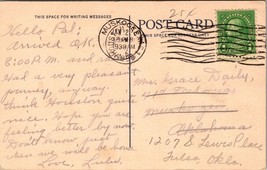 THIS SPACE FOR WRITING MESSAGES
POST CARD
Hello Pal:
Arrived O.K.
8:00 P.M. and
Had a very pleasant
journey, anyway.
think Houston quite
nice. Hope you are
feeling better by now
Don't know just
when we will be home
Love,
MUSKOGEE
Miss Grace Daily,
Muskogee
Oklahoma
1207 S Lewis Place
Tulsa, Okla.